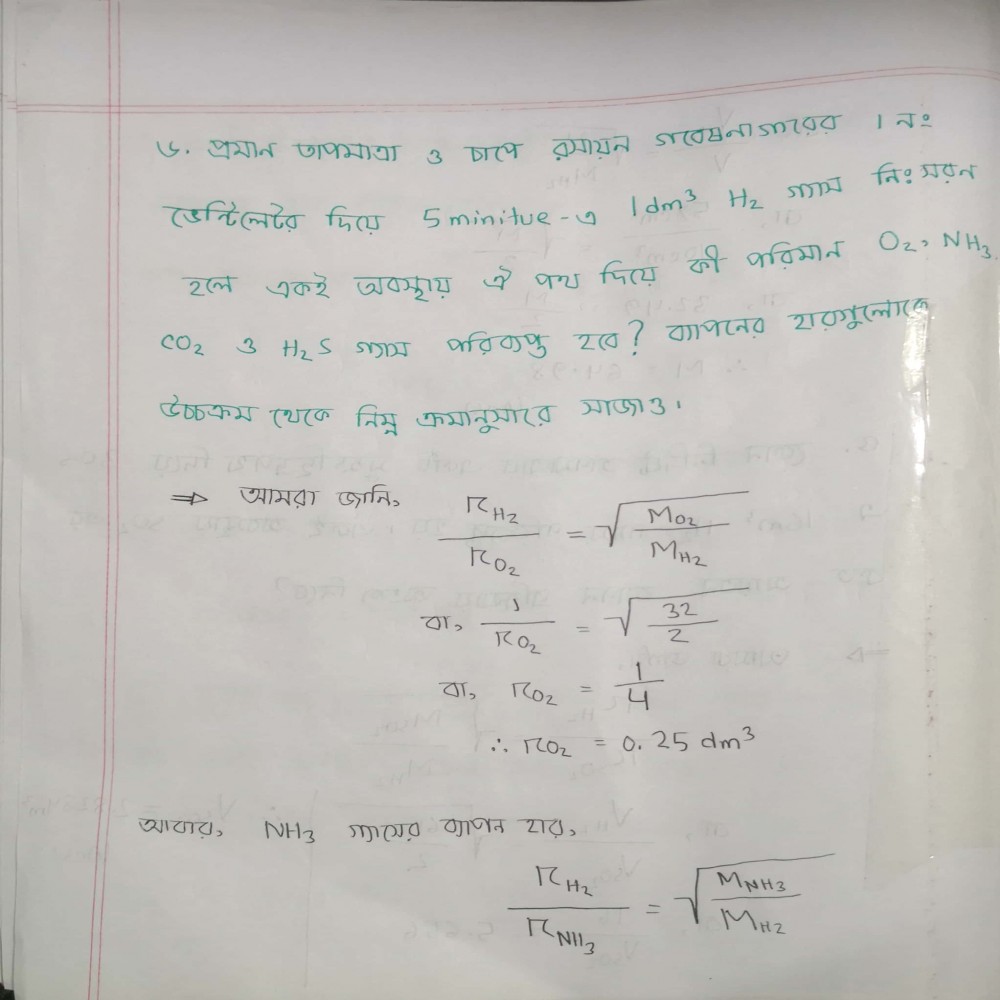 ৬. প্রমান তাপমাত্রা ও চাপে রসায়ন গবেষনাগারের 1 নং
ভেন্টিলেটর দিয়ে 5 minitue-এ 1dm³ H₂ গ্যাস নিঃসরন
হলে একই অবস্থায় ঐ পথ দিয়ে কী পরিমান O₂, NH₃
CO₂ ও H₂S গ্যাস পরিব্যপ্ত হবে? ব্যাপনের হারগুলোকে
উচ্চক্রম থেকে নিম্ন ক্রমানুসারে সাজাও।
⇒ আমরা জানি, r_H₂ / r_O₂ = √(M_O₂ / M_H₂)
বা, 1 / r_O₂ = √(32 / 2)
বা, r_O₂ = 1 / 4
∴ r_O₂ = 0.25 dm³
আবার, NH₃ গ্যাসের ব্যাপন হার,
r_H₂ / r_NH₃ = √(M_NH₃ / M_H₂)